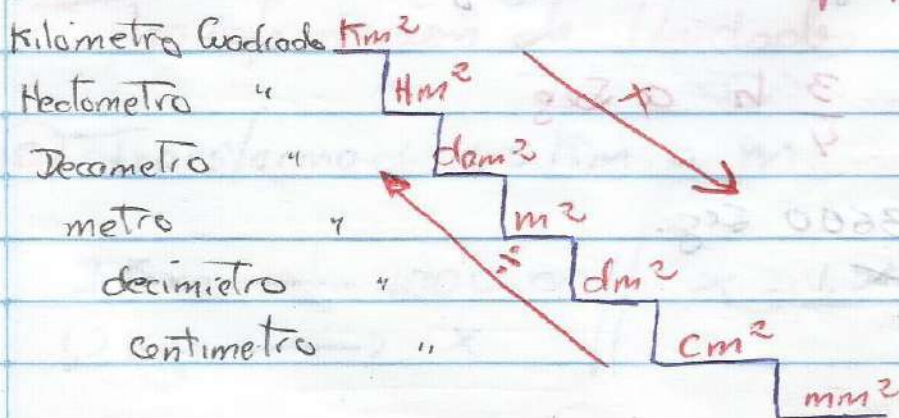 Kilometro Cuadrado Km²
Hectometro " Hm²
Decametro " dam²
metro " m²
decimetro " dm²
centimetro " cm²
mm²
x
÷
3 h a seg
4
3600 seg.